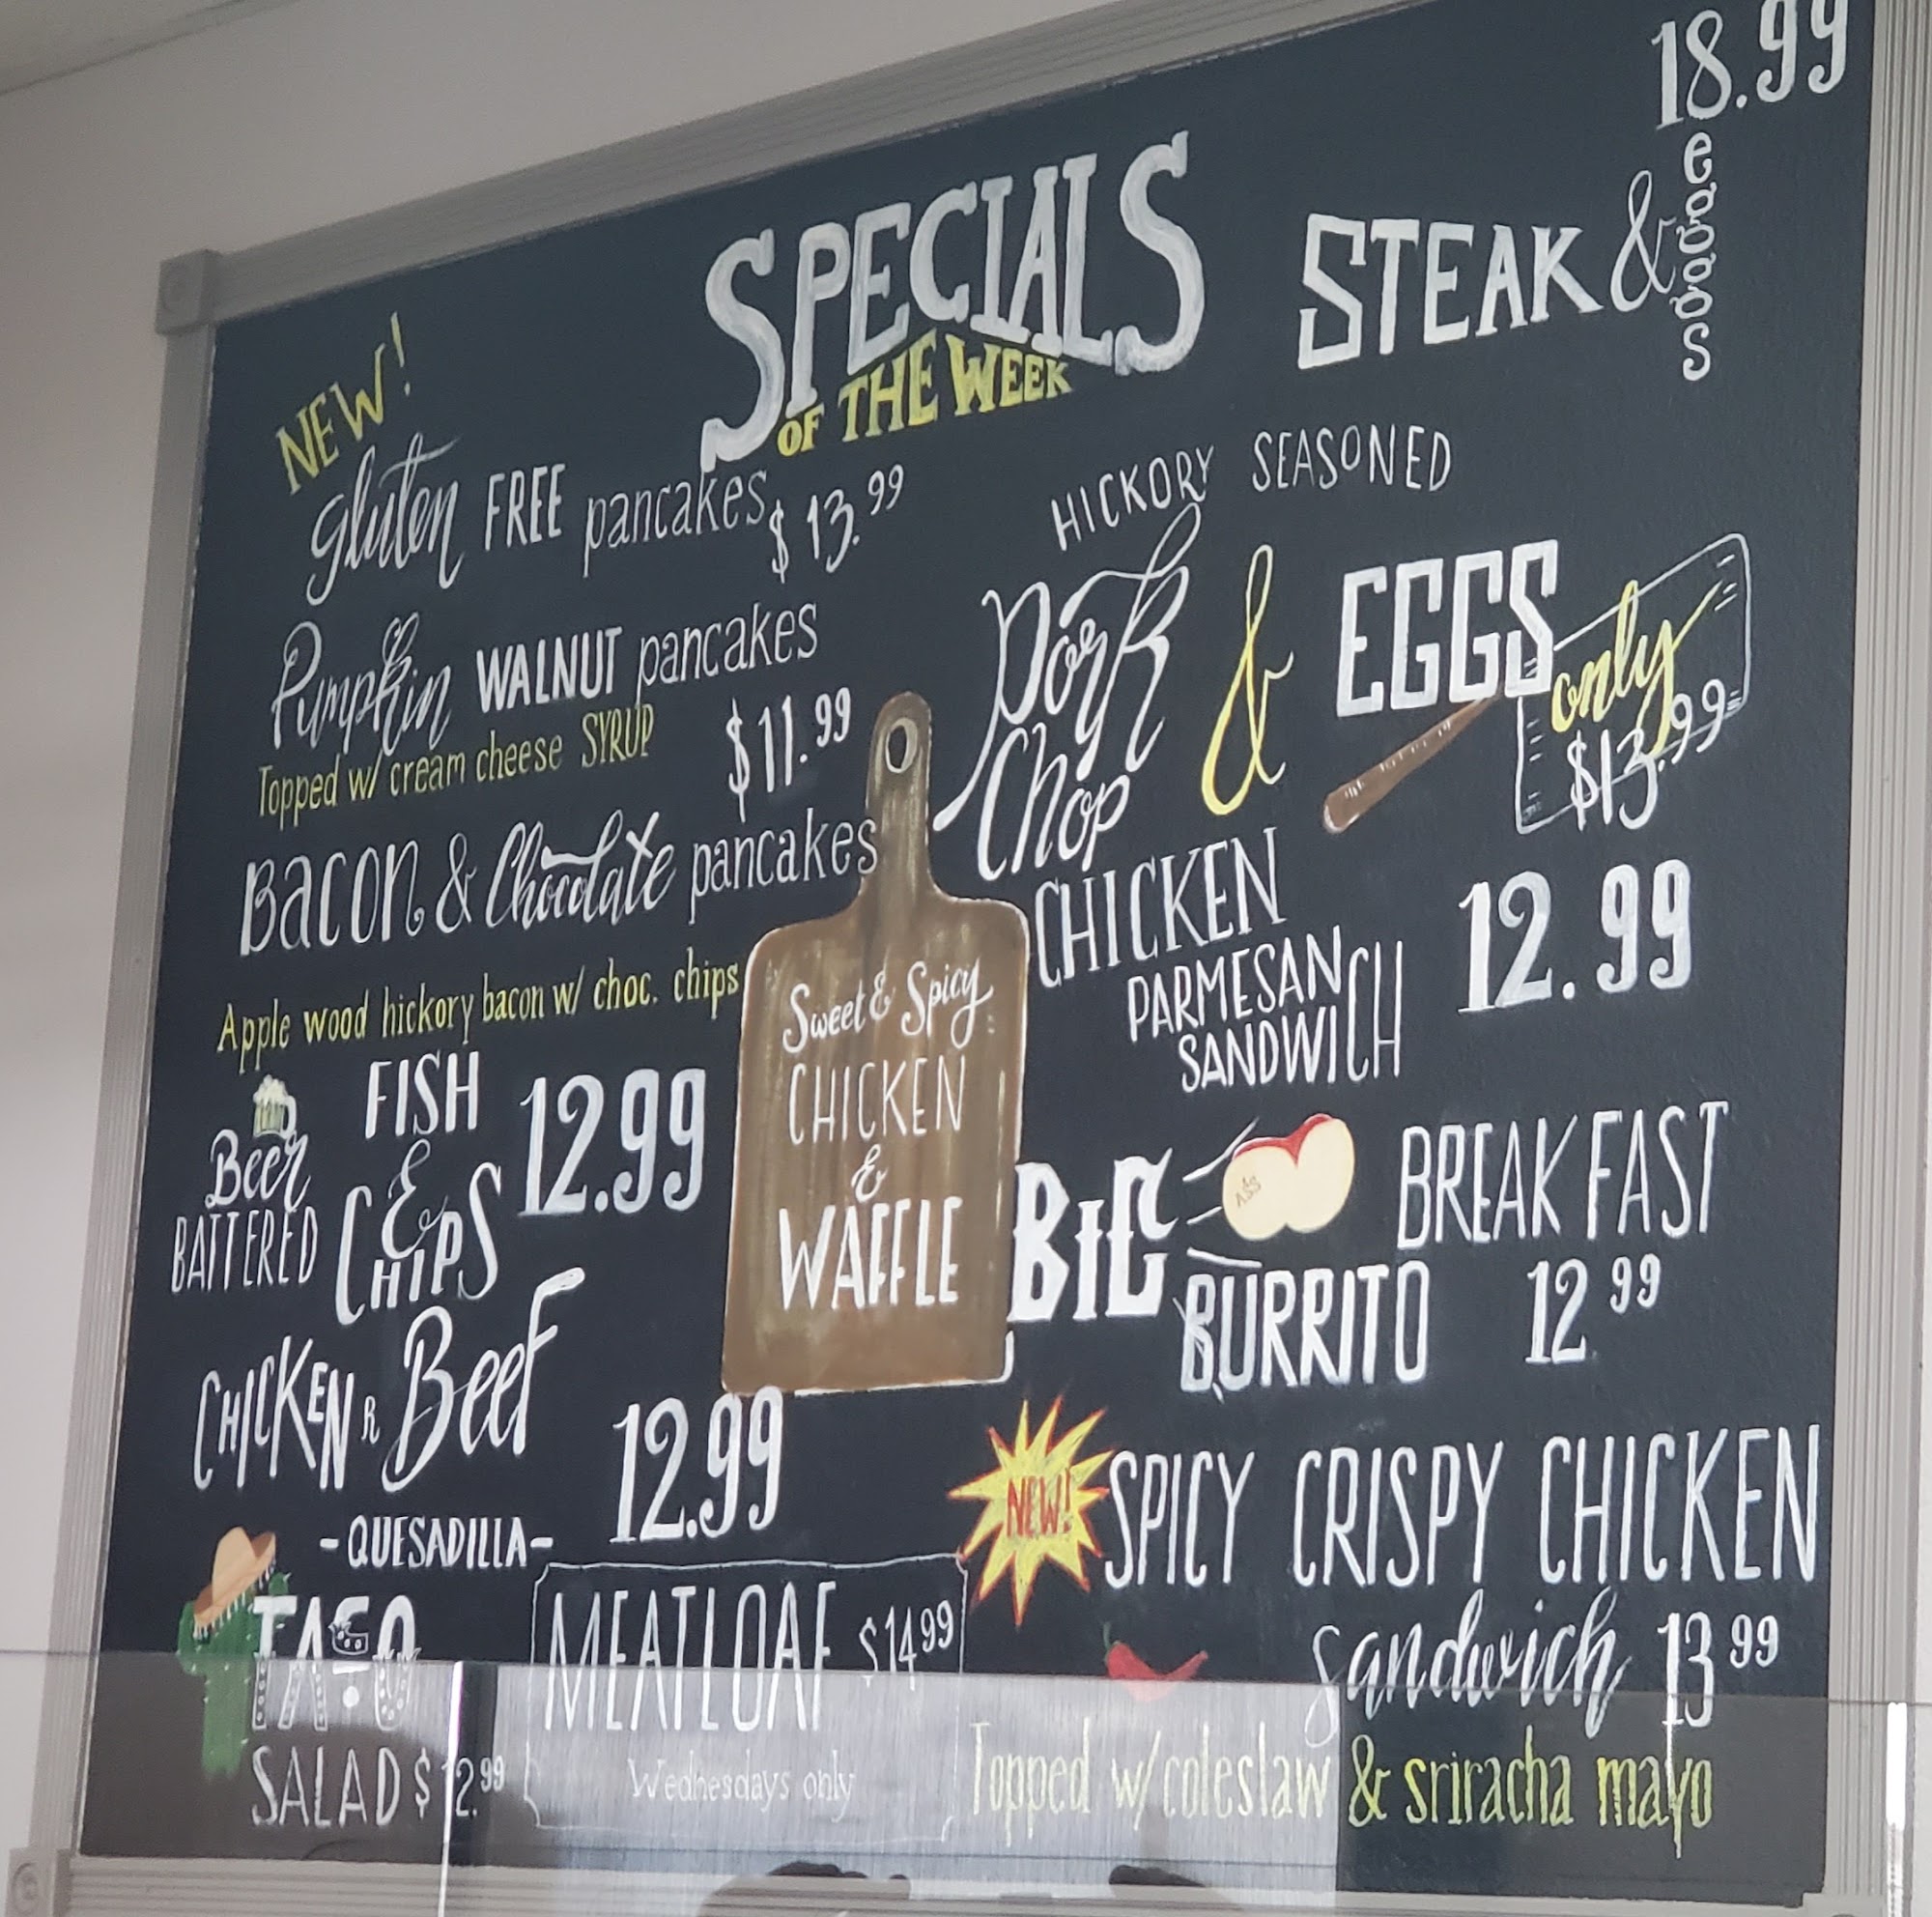 SPECIALS
OF THE WEEK
NEW!
gluten FREE pancakes $13.99
Pumpkin WALNUT pancakes
Topped w/ cream cheese SYRUP
$11.99
BACON & Chocolate pancakes
Apple wood hickory bacon w/ choc. chips
Beer
BATTERED
FISH
&
CHIPS
12.99
CHICKEN R Beef
-QUESADILLA-
12.99
TACO
SALAD $12.99
MEATLOAF $14.99
Wednesdays only
Sweet & Spicy
CHICKEN
&
WAFFLE
STEAK & eggs
18.99
HICKORY SEASONED
Pork
Chop
& EGGS
only
$13.99
CHICKEN
PARMESAN
SANDWICH
12.99
BIG
ASS
BREAKFAST
BURRITO 12 99
NEW!
SPICY CRISPY CHICKEN
Sandwich 13 99
Topped w/ coleslaw & sriracha mayo